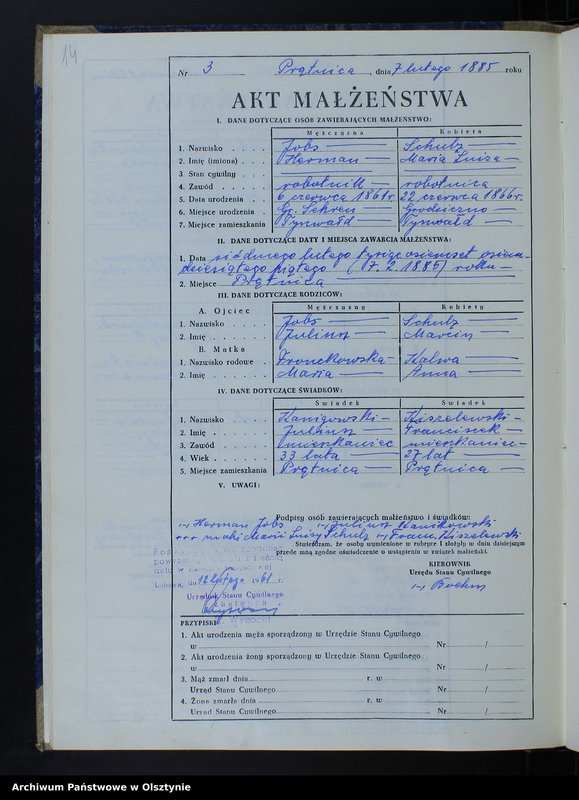 14
Nr 3 Prątnica, dnia 7 lutego 1885 roku
AKT MAŁŻEŃSTWA
I. DANE DOTYCZĄCE OSÓB ZAWIERAJĄCYCH MAŁŻEŃSTWO:
Mężczyzna Kobieta
1. Nazwisko Jobs Schulz
2. Imię (imiona) Herman Maria Luiza
3. Stan cywilny
4. Zawód robotnik robotnica
5. Data urodzenia 6 czerwca 1861 r. 22 czerwca 1866 r.
6. Miejsce urodzenia Gr. Grodziczno
7. Miejsce zamieszkania Tynwałd Tynwałd
II. DANE DOTYCZĄCE DATY I MIEJSCA ZAWARCIA MAŁŻEŃSTWA:
1. Data siódmego lutego tysiąc osiemset osiem-
dziesiątego piątego (7. 2. 1885) roku
2. Miejsce Prątnica
III. DANE DOTYCZĄCE RODZICÓW:
Mężczyzny Kobiety
A. Ojciec
1. Nazwisko Jobs Schulz
2. Imię Juliusz Marcin
B. Matka
1. Nazwisko rodowe Fronckowska Kalwa
2. Imię Maria Anna
IV. DANE DOTYCZĄCE ŚWIADKÓW:
Świadek Świadek
1. Nazwisko Kanigowski Kiszelewski
2. Imię Juliusz Franciszek
3. Zawód mieszkaniec mieszkaniec
4. Wiek 33 lata 27 lat
5. Miejsce zamieszkania Prątnica Prątnica
V. UWAGI:
Podpisy osób zawierających małżeństwo i świadków:
/-/ Herman Jobs /-/ Juliusz Kanikowski
+++ znaki Marii Luizy Schulz /-/ Franz Kiszelewski
Stwierdzam, że osoby wymienione w rubryce I złożyły w dniu dzisiejszym
przede mną zgodne oświadczenie o wstąpieniu w związek małżeński.
KIEROWNIK
Urzędu Stanu Cywilnego
/-/ Bochm
dn. 12 lutego 1961 r.
Urzędnik Stanu Cywilnego
Zastępca
Wysocki
PRZYPISKI
1. Akt urodzenia męża sporządzony w Urzędzie Stanu Cywilnego
w Nr /
2. Akt urodzenia żony sporządzony w Urzędzie Stanu Cywilnego
w Nr /
3. Mąż zmarł dnia r. w
Urząd Stanu Cywilnego Nr /
4. Żona zmarła dnia r. w
Urząd Stanu Cywilnego Nr /
Archiwum Państwowe w Olsztynie